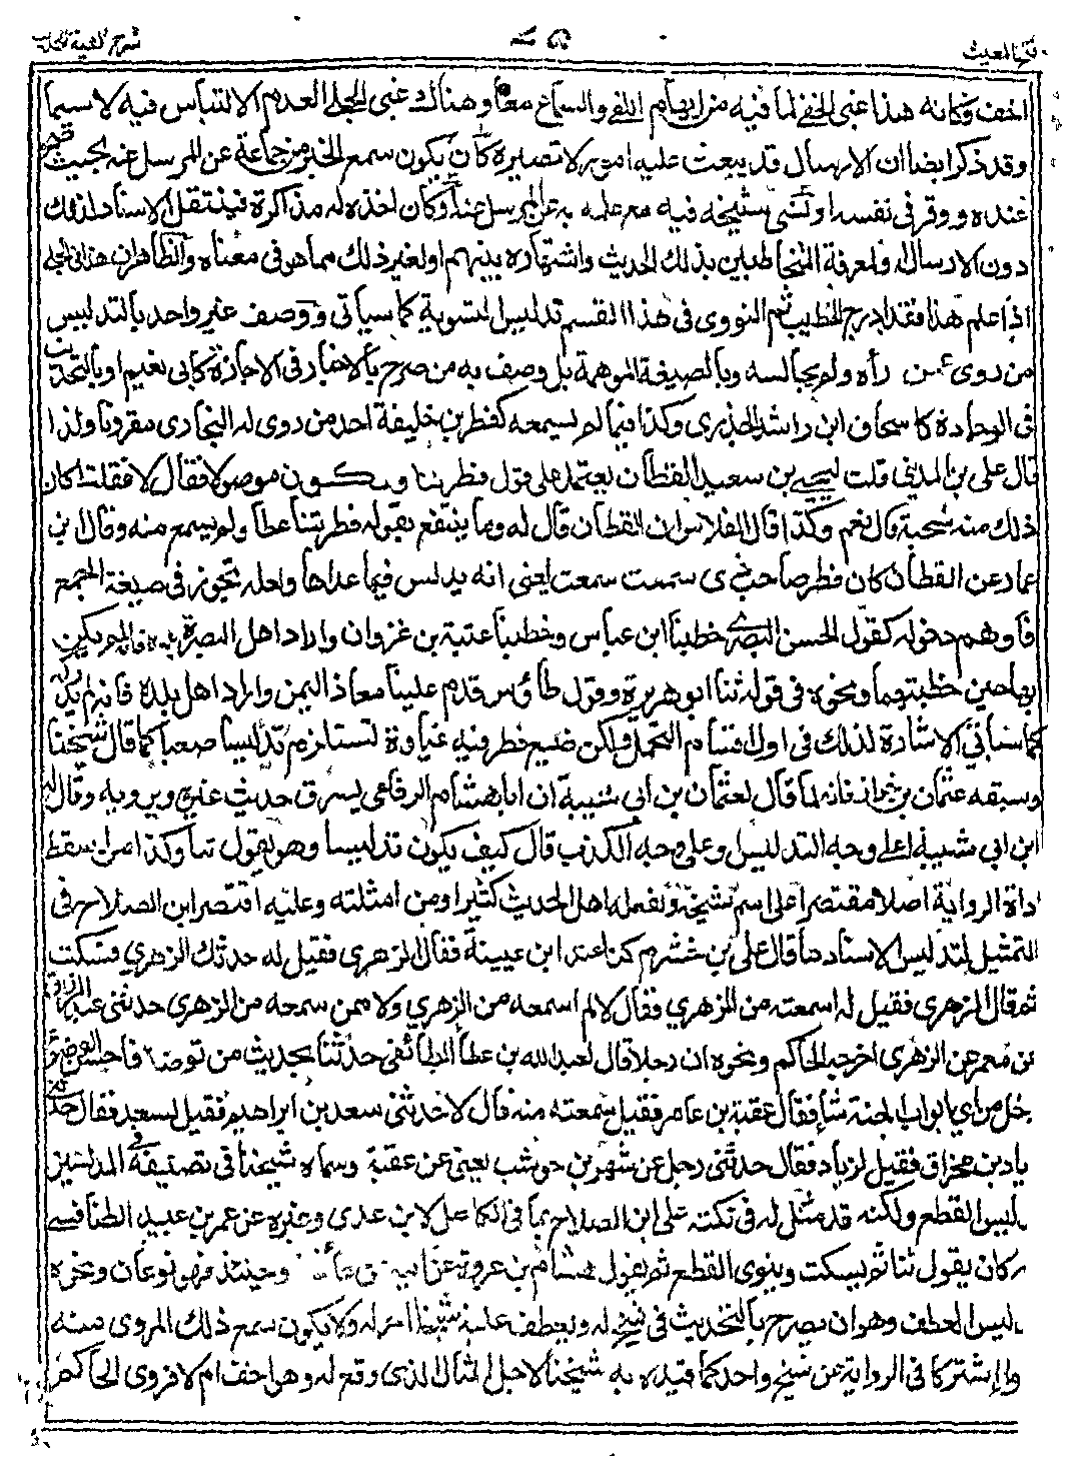 فتح المغيث
شرح الفية الحديث
اخف وكانه هذا عنى الخفي لما فيه من ايهام اللقي والسماع معا وهناك عنى الجلي لعدم الالتباس فيه لا سيما
وقد ذكر ايضا ان الارسال قد يبعث عليه امور لا تضيره كان يكون سمع الخبر من جماعة عن المرسل عنه بحيث صح
عنده ووقر في نفسه او نسي شيخه فيه مع علمه به عن المرسل عنه او كان اخذه له مذاكرة فينتقل الاسناد لذلك
دون الارسال او لمعرفة المتخاطبين بذلك الحديث واشتهاره بينهم او لغير ذلك مما هو في معناه والظاهر ان هذا في الجلي
اذا علم هذا فقد ادرج الخطيب ثم النووي في هذا القسم تدليس التسوية كما سياتي ووصف غير واحد بالتدليس
من روى عمن رأه ولم يجالسه وبالصيغة الموهمة بل وصف به من صرح بالاخبار في الاجازة كابي نعيم او بالتحديث
في الوجادة كاسحاق ابن راشد الجزري وكذا فيما لم يسمعه كفطر بن خليفة احد من روى له البخاري مقرونا ولذا
قال على بن المديني قلت ليحيى بن سعيد القطان يعتمد على قول فطر ثنا ويكون موصولا فقال لا فقلت اكان
ذلك منه سجية قال نعم وكذا قال الفلاس ان القطان قال له وما ينتفع بقوله فطر ثنا عطا ولم يسمع منه وقال ابن
عمار عن القطان كان فطر صاحب ذي سمعت سمعت يعني انه يدلس فيما عداها ولعله تجوز في صيغة الجمع
فاوهم دخوله كقول الحسن البصري خطبنا ابن عباس وخطبنا عتبة بن غزوان واراد اهل البصرة بلده فانه لم يكن
بها حين خطبتهما ونحوه في قوله ثنا ابو هريرة وقول طاؤس قدم علينا معاذ اليمن واراد اهل بلده فانه لم يدركه
كما ستاتي الاشارة لذلك في اول اقسام التحمل ولكن صنيع فطر فيه غباوة تستلزم تدليسا صعبا كما قال شيخنا
وسبقه عثمان بن خرزاذ فانه لما قال لعثمان بن ابي شيبة ان ابا هشام الرفاعي يسرق حديث غيره ويرويه وقال له
ابن ابي شيبة اعلى وجه التدليس او على وجه الكذب قال كيف يكون تدليسا وهو يقول ثنا وكذا من اسقط
اداة الرواية اصلا مقتصرا على اسم شيخه وتفعله اهل الحديث كثيرا ومن امثلته وعليه اقتصر ابن الصلاح في
التمثيل لتدليس الاسناد ما قال على بن خشرم كنا عند ابن عيينة فقال الزهري فقيل له حدثك الزهري فسكت
ثم قال الزهري فقيل له اسمعته من الزهري فقال لا لم اسمعه من الزهري ولا ممن سمعه من الزهري حدثني عبد الرزاق
عن معمر عن الزهري اخرجه الحاكم ونحوه ان رجلا قال لعبد الله بن عطا الطائفي حدثنا بحديث من توضا فاحسن الوضوء
دخل من اي ابواب الجنة شاء فقال عقبة بن عامر فقيل سمعته منه قال لا حدثني سعد بن ابراهيم فقيل لسعد فقال حدثني
زياد بن مخراق فقيل لزياد فقال حدثني رجل عن شهر بن حوشب يعني عن عقبة وسماه شيخنا في تصنيفه في المدلسين
تدليس القطع ولكنه قد مثل له في نكته على ابن الصلاح بما في الكامل لابن عدي وغيره عن عمر بن عبيد الطنافسي
انه كان يقول ثنا ثم يسكت وينوى القطع ثم يقول هشام بن عروة عن ابيه عن عائشة وحينئذ فهو نوعان ونحوه
تدليس العطف وهو ان يصرح بالتحديث في شيخ له ويعطف عليه شيخا اخر له ولا يكون سمع ذلك المروي منه
واإشتركا في الرواية عن شيخ واحد كما قيده به شيخنا لاجل المثال الذي وقع له وهو اخف ام لا فروى الحاكم